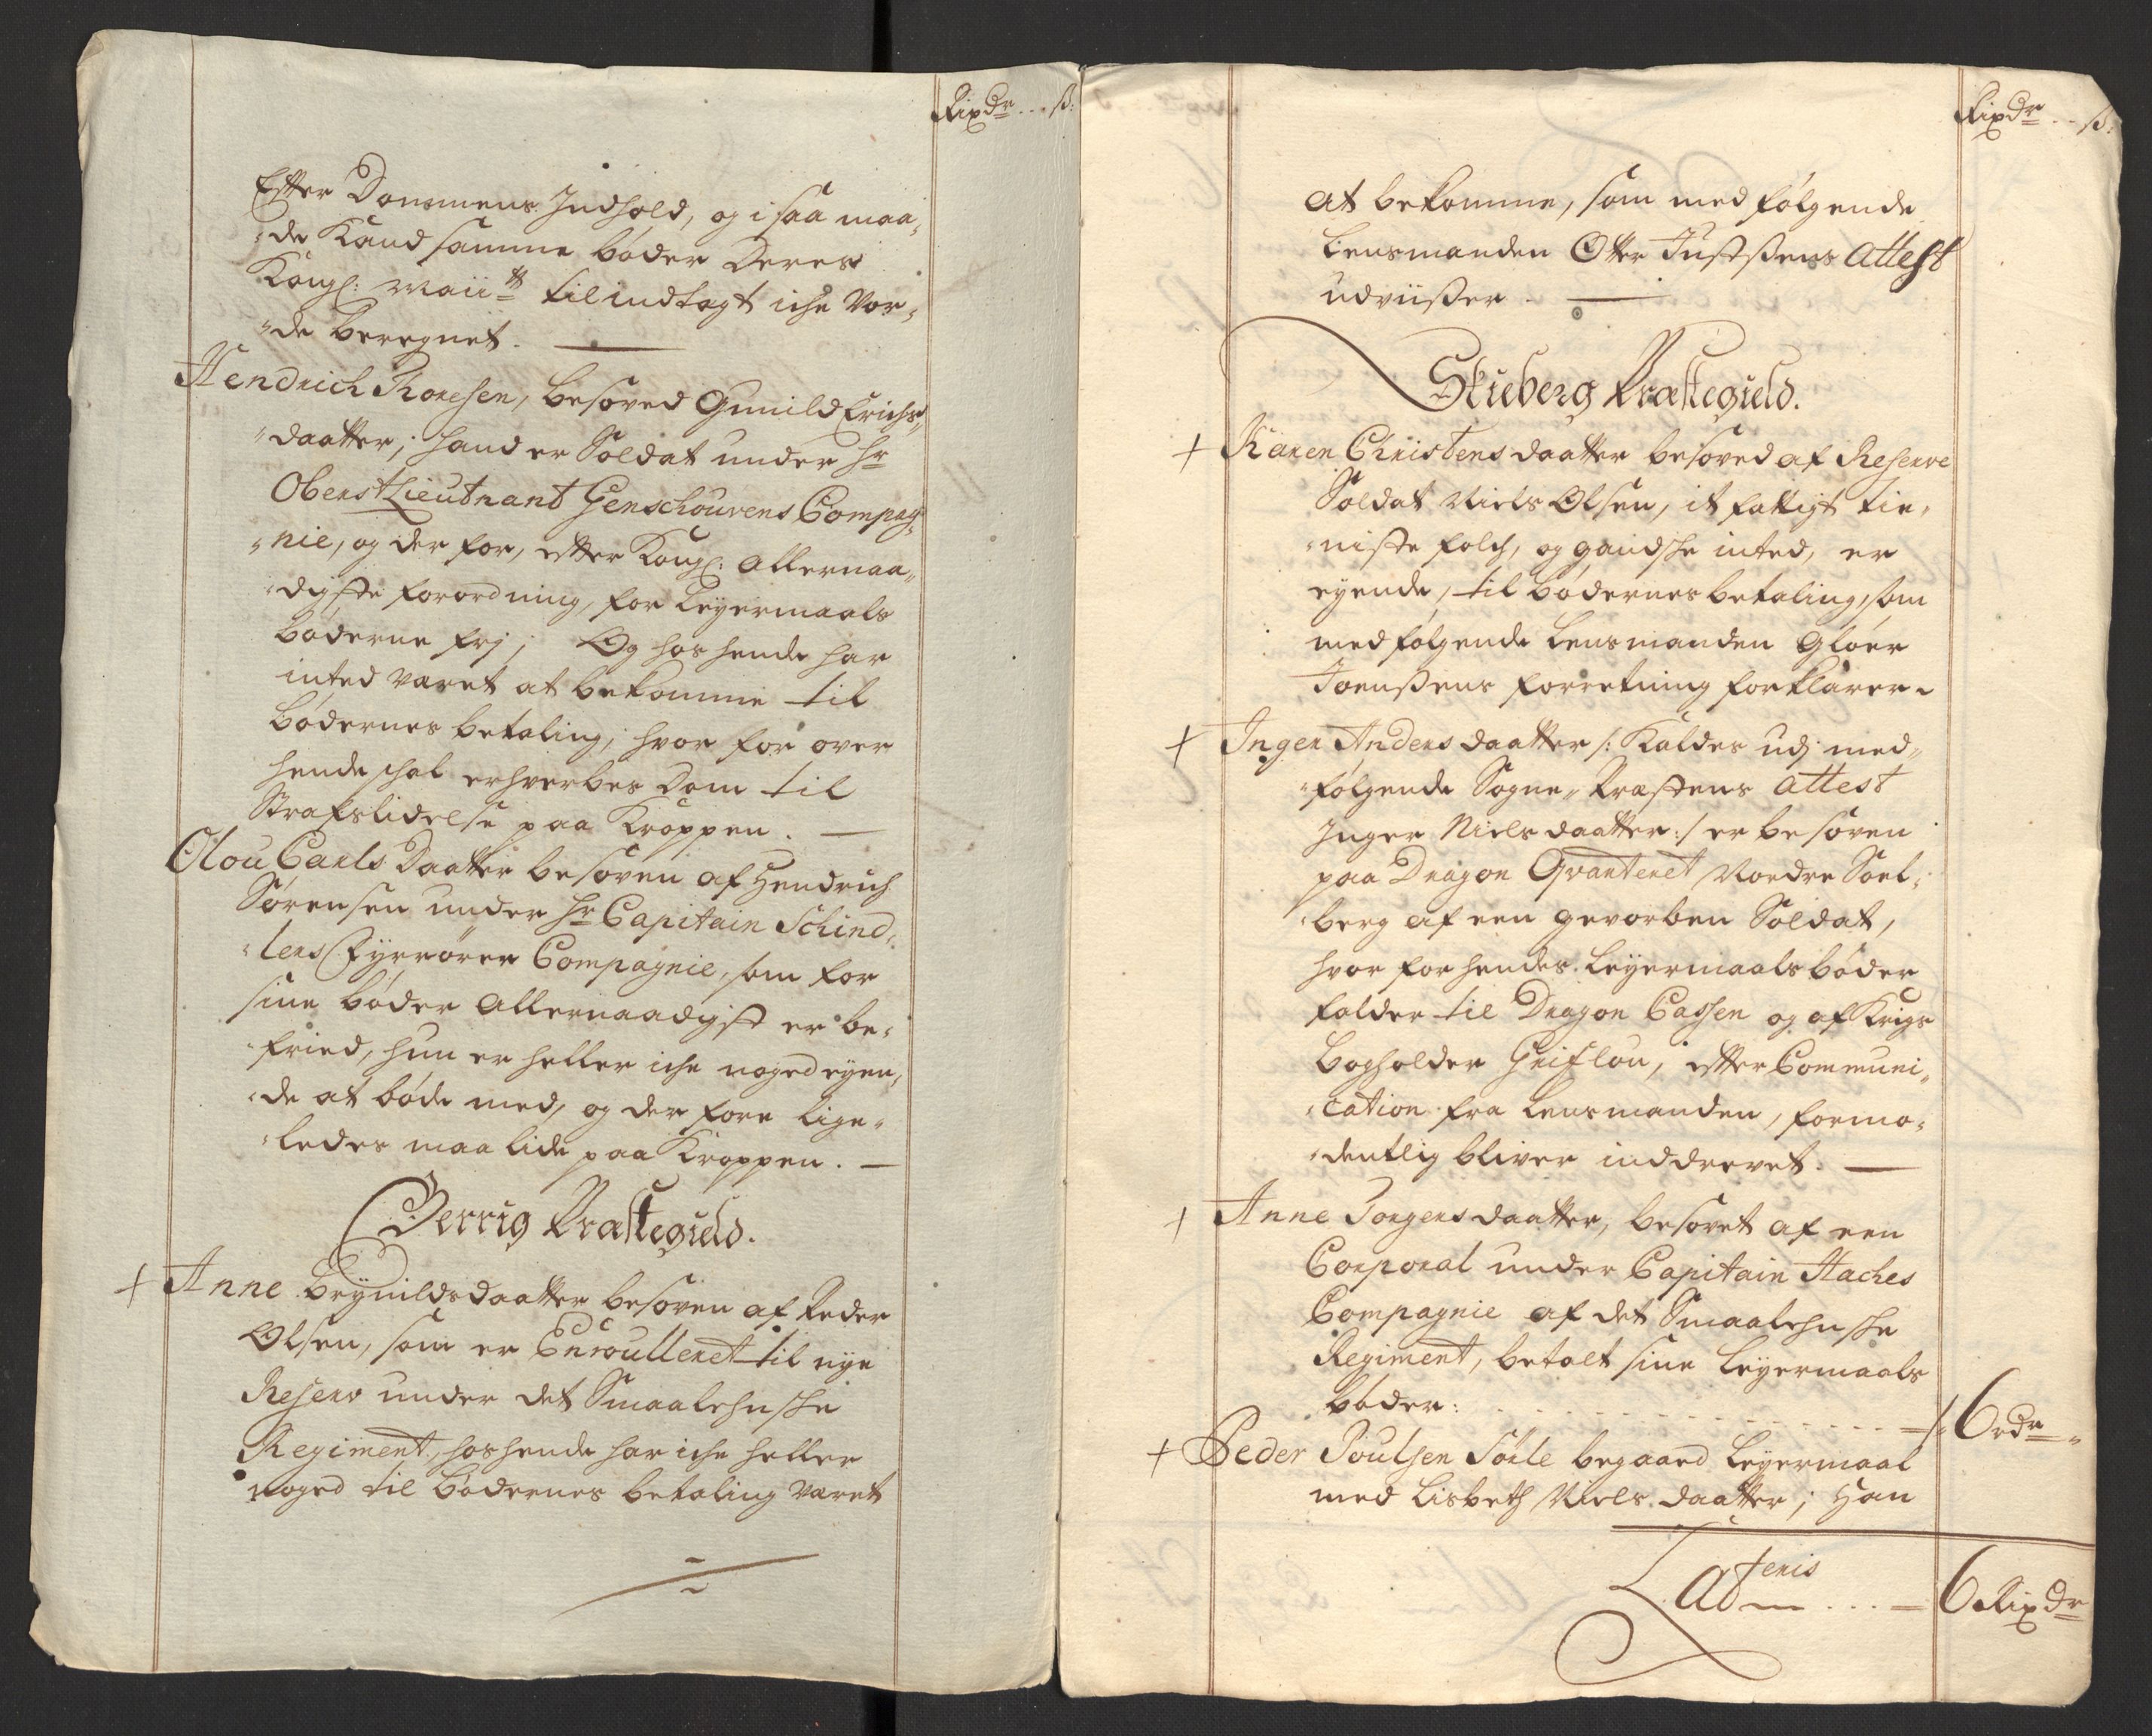 Rixdr...ß:
Efter Dommens Indhold, og i saa maa-
de Kand samme bøder Deres
Kongl: Maiitt til indtægt iche Vor-
de beregnet.
Hendrich Roresen, besøved Gunild Erichs
daatter; hand er Soldat under Hr
Oberst Lieutnant Genschouvens Compag-
nie, og der for, efter Kongl: allernaa-
digste forordning, for Leyermaals
bøderne frj; Og hos hende har
inted varet at bekomme til
bødernes betaling, hvor for over
hende schal erhverbes Dom til
Strafs lidelse paa Kroppen.
Olou Carls Daatter besøven af Hendrich
Sørensen under Hr Capitain Schind-
lers Fyrrører Compagnie, som for
sine bøder allernaadigst er be-
fried, hun er heller iche noged eyen-
de at bøde med, og der fore lige-
ledes maa lide paa Kroppen.
Berrig Præstegield.
+ Anne Brynildsdaatter besøven af Peder
Olsen, som er Enroulleret til nye
Reserv under det Smaalehnsche
Regiment, hos hende har iche heller
noged til bødernes betaling varet
Rixdr...ß:
at bekomme, som medfølgende
Lensmanden Otter Justsens Attest
udviißer.
Skieberg Præstegield.
+ Karen Christens daatter besøved af Reserve
Soldat Niels Olsen, it fattigt tie-
niste folch, og gandsche inted, er
eyende, til bødernes betaling, som
medfølgende Lensmanden Gloer
Joensens forretning forklarer
+ Inger Anders daatter /: Kaldes udj med-
følgende Sogne Præstens Attest
Inger Niels daatter:/ er besøven
paa Dragon Qvarteret Nordre Soel-
berg af een gevorben Soldat,
hvor for hendes Leyermaals bøder
falder til Dragon Cassen og af Krigs
bogholder Griflou, efter Communi-
cation fra Lensmanden, formo-
dentlig bliver inddrevet.
+ Anne Torgers daatter, besovet af een
Corporal under Capitain Haches
Compagnie af det Smaalehnsche
Regiment, betalt sine Leyermaals
bøder: 6 rdr
+ Peder Poulsen Sørle begaaed Leyermaal
med Lisbeth Niels daatter; Han
Lateris ... 6 Rixdr